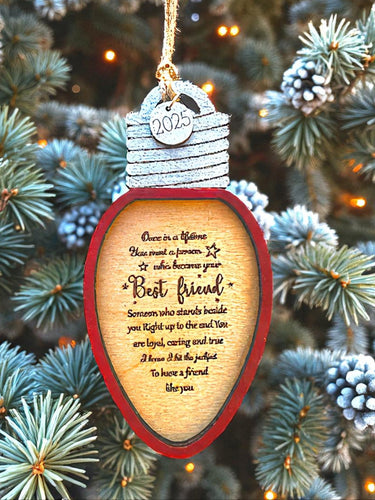 2025
Once in a lifetime
You meet a person
who became your
Best friend
Someone who stands beside
you Right up to the end You
are loyal, caring and true
I know I hit the jackpot
To have a friend
like you